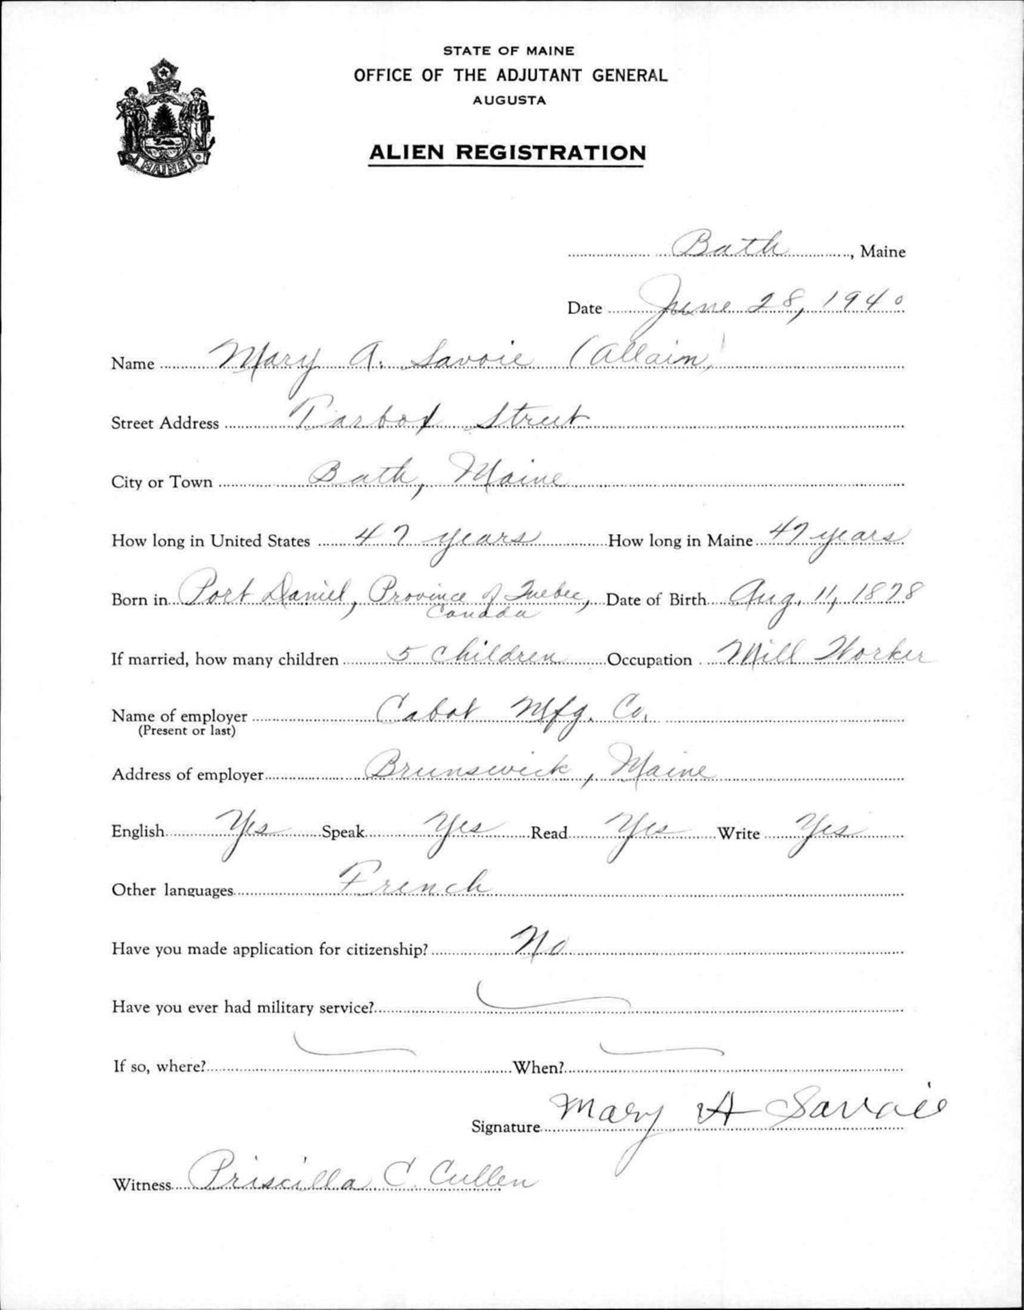 STATE OF MAINE
OFFICE OF THE ADJUTANT GENERAL
AUGUSTA
ALIEN REGISTRATION
MAINE
Bath, Maine
Date June 28, 1940
Name Mary A. Savoie (Allain)
Street Address Tarbox Street
City or Town Bath, Maine
How long in United States 47 years How long in Maine 47 years
Born in Port Daniel, Province of Quebec, Date of Birth Aug. 11, 1878
Canada
If married, how many children 5 children Occupation Mill Worker
Name of employer Cabot Mfg. Co.
(Present or last)
Address of employer Brunswick, Maine
English Yes Speak Yes Read Yes Write Yes
Other languages French
Have you made application for citizenship? No
Have you ever had military service?
If so, where? When?
Signature Mary A Savoie
Witness Priscilla C. Cullen